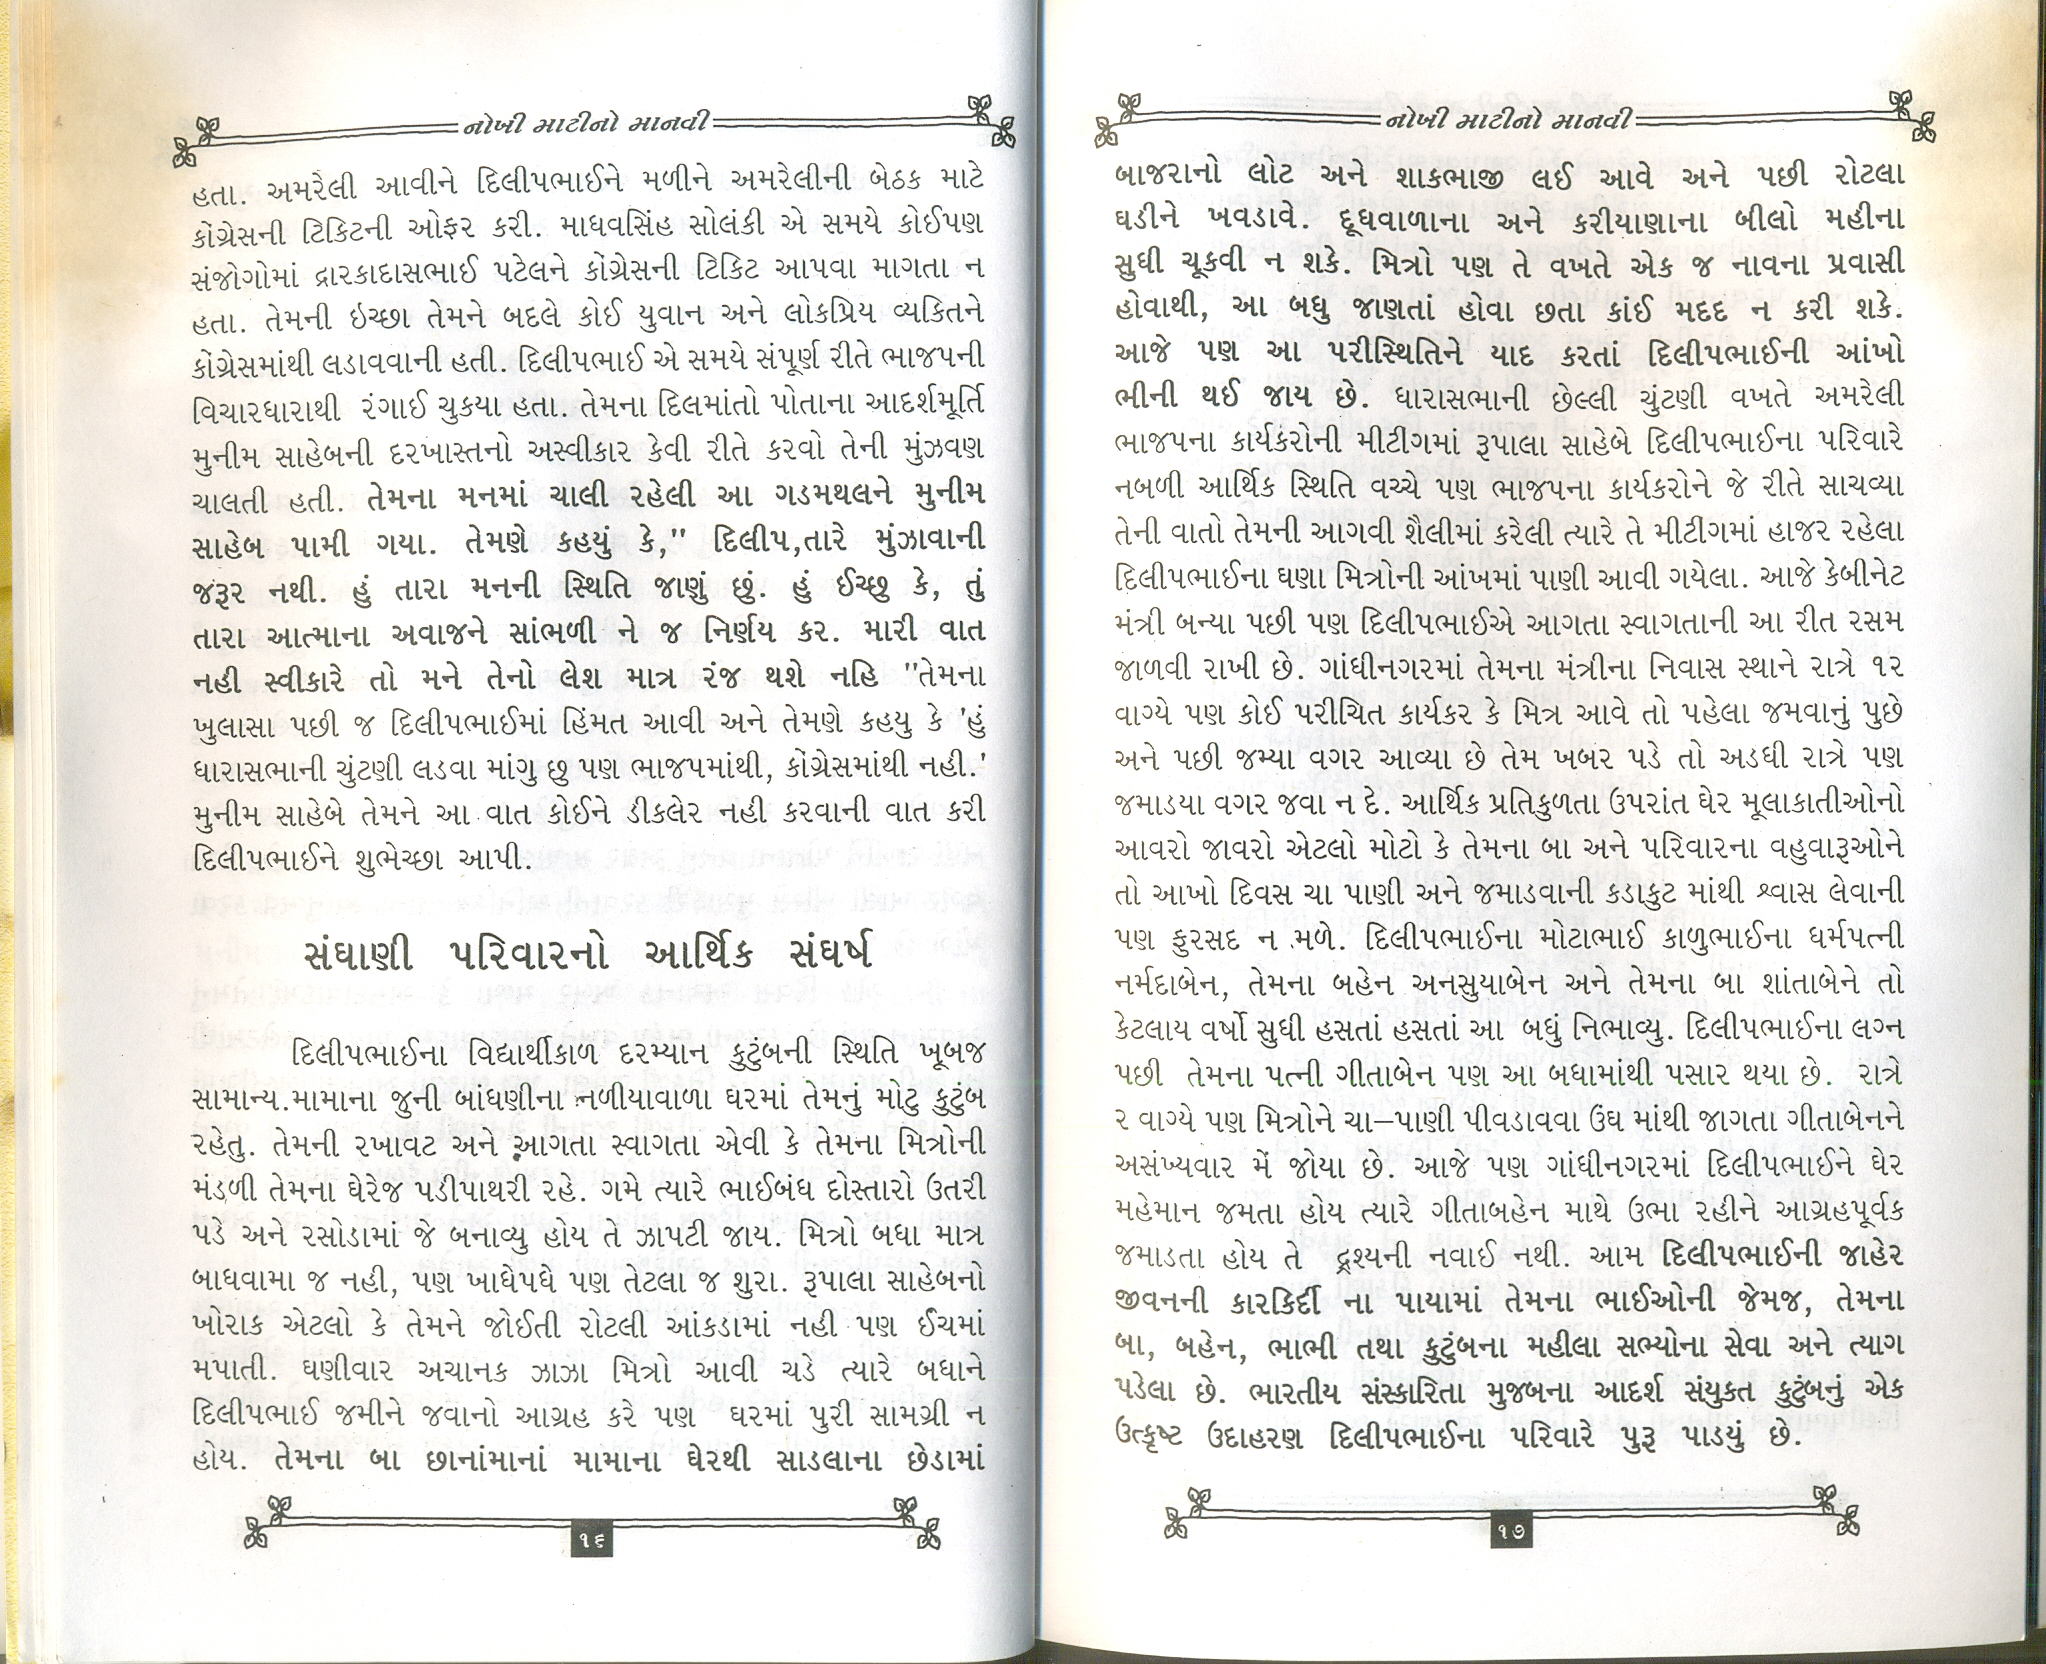 નોખી માટીનો માનવી
હતા. અમરૈલી આવીને દિલીપભાઈને મળીને અમરેલીની બેઠક માટે
કોંગ્રેસની ટિકિટની ઓફર કરી. માધવસિંહ સોલંકી એ સમયે કોઈપણ
સંજોગોમાં દ્રારકાદાસભાઈ પટેલને કોંગ્રેસની ટિકિટ આપવા માગતા ન
હતા. તેમની ઇચ્છા તેમને બદલે કોઈ યુવાન અને લોકપ્રિય વ્યકિતને
કોંગ્રેસમાંથી લડાવવાની હતી. દિલીપભાઈ એ સમયે સંપૂર્ણ રીતે ભાજપની
વિચારધારાથી રંગાઈ ચુકયા હતા. તેમના દિલમાંતો પોતાના આદર્શમૂર્તિ
મુનીમ સાહેબની દરખાસ્તનો અસ્વીકાર કેવી રીતે કરવો તેની મુંઝવણ
ચાલતી હતી. તેમના મનમાં ચાલી રહેલી આ ગડમથલને મુનીમ
સાહેબ પામી ગયા. તેમણે કહયું કે," દિલીપ,તારે મુંઝાવાની
જરૂર નથી. હું તારા મનની સ્થિતિ જાણું છું. હું ઈચ્છુ કે, તું
તારા આત્માના અવાજને સાંભળી ને જ નિર્ણય કર. મારી વાત
નહી સ્વીકારે તો મને તેનો લેશ માત્ર રંજ થશે નહિ "તેમના
ખુલાસા પછી જ દિલીપભાઈમાં હિંમત આવી અને તેમણે કહયુ કે 'હું
ધારાસભાની ચુંટણી લડવા માંગુ છુ પણ ભાજપમાંથી, કોંગ્રેસમાંથી નહી.'
મુનીમ સાહેબે તેમને આ વાત કોઈને ડીકલેર નહી કરવાની વાત કરી
દિલીપભાઈને શુભેચ્છા આપી.
સંઘાણી પરિવારનો આર્થિક સંઘર્ષ
દિલીપભાઈના વિદ્યાર્થીકાળ દરમ્યાન કુટુંબની સ્થિતિ ખૂબજ
સામાન્ય.મામાના જુની બાંધણીના નળીયાવાળા ઘરમાં તેમનું મોટુ કુટુંબ
રહેતુ. તેમની રખાવટ અને આગતા સ્વાગતા એવી કે તેમના મિત્રોની
મંડળી તેમના ઘેરેજ પડીપાથરી રહે. ગમે ત્યારે ભાઈબંધ દોસ્તારો ઉતરી
પડે અને રસોડામાં જે બનાવ્યુ હોય તે ઝાપટી જાય. મિત્રો બધા માત્ર
બાધવામા જ નહી, પણ ખાધેપધે પણ તેટલા જ શુરા. રૂપાલા સાહેબનો
ખોરાક એટલો કે તેમને જોઈતી રોટલી આંકડામાં નહી પણ ઈચમાં
મપાતી. ઘણીવાર અચાનક ઝાઝા મિત્રો આવી ચડે ત્યારે બધાને
દિલીપભાઈ જમીને જવાનો આગ્રહ કરે પણ ઘરમાં પુરી સામગ્રી ન
હોય. તેમના બા છાનાંમાનાં મામાના ઘેરથી સાડલાના છેડામાં
૧૬
નોખી માટીનો માનવી
બાજરાનો લોટ અને શાકભાજી લઈ આવે અને પછી રોટલા
ઘડીને ખવડાવે. દૂધવાળાના અને કરીયાણાના બીલો મહીના
સુધી ચૂકવી ન શકે. મિત્રો પણ તે વખતે એક જ નાવના પ્રવાસી
હોવાથી, આ બધુ જાણતાં હોવા છતા કાંઈ મદદ ન કરી શકે.
આજે પણ આ પરીસ્થિતિને યાદ કરતાં દિલીપભાઈની આંખો
ભીની થઈ જાય છે. ધારાસભાની છેલ્લી ચુંટણી વખતે અમરેલી
ભાજપના કાર્યકરોની મીટીંગમાં રૂપાલા સાહેબે દિલીપભાઈના પરિવારે
નબળી આર્થિક સ્થિતિ વચ્ચે પણ ભાજપના કાર્યકરોને જે રીતે સાચવ્યા
તેની વાતો તેમની આગવી શૈલીમાં કરેલી ત્યારે તે મીટીંગમાં હાજર રહેલા
દિલીપભાઈના ઘણા મિત્રોની આંખમાં પાણી આવી ગયેલા. આજે કેબીનેટ
મંત્રી બન્યા પછી પણ દિલીપભાઈએ આગતા સ્વાગતાની આ રીત રસમ
જાળવી રાખી છે. ગાંધીનગરમાં તેમના મંત્રીના નિવાસ સ્થાને રાત્રે ૧૨
વાગ્યે પણ કોઈ પરીચિત કાર્યકર કે મિત્ર આવે તો પહેલા જમવાનું પુછે
અને પછી જમ્યા વગર આવ્યા છે તેમ ખબર પડે તો અડધી રાત્રે પણ
જમાડયા વગર જવા ન દે. આર્થિક પ્રતિકુળતા ઉપરાંત ઘેર મૂલાકાતીઓનો
આવરો જાવરો એટલો મોટો કે તેમના બા અને પરિવારના વહુવારૂઓને
તો આખો દિવસ ચા પાણી અને જમાડવાની કડાકુટ માંથી શ્વાસ લેવાની
પણ ફુરસદ ન મળે. દિલીપભાઈના મોટાભાઈ કાળુભાઈના ધર્મપત્ની
નર્મદાબેન, તેમના બહેન અનસુયાબેન અને તેમના બા શાંતાબેને તો
કેટલાય વર્ષો સુધી હસતાં હસતાં આ બધું નિભાવ્યુ. દિલીપભાઈના લગ્ન
પછી તેમના પત્ની ગીતાબેન પણ આ બધામાંથી પસાર થયા છે. રાત્રે
૨ વાગ્યે પણ મિત્રોને ચા–પાણી પીવડાવવા ઉંઘ માંથી જાગતા ગીતાબેનને
અસંખ્યવાર મેં જોયા છે. આજે પણ ગાંધીનગરમાં દિલીપભાઈને ઘેર
મહેમાન જમતા હોય ત્યારે ગીતાબહેન માથે ઉભા રહીને આગ્રહપૂર્વક
જમાડતા હોય તે દ્રશ્યની નવાઈ નથી. આમ દિલીપભાઈની જાહેર
જીવનની કારકિર્દી ના પાયામાં તેમના ભાઈઓની જેમજ, તેમના
બા, બહેન, ભાભી તથા કુટુંબના મહીલા સભ્યોના સેવા અને ત્યાગ
પડેલા છે. ભારતીય સંસ્કારિતા મુજબના આદર્શ સંયુકત કુટુંબનું એક
ઉત્કૃષ્ટ ઉદાહરણ દિલીપભાઈના પરિવારે પુરૂ પાડયું છે.
૧૭